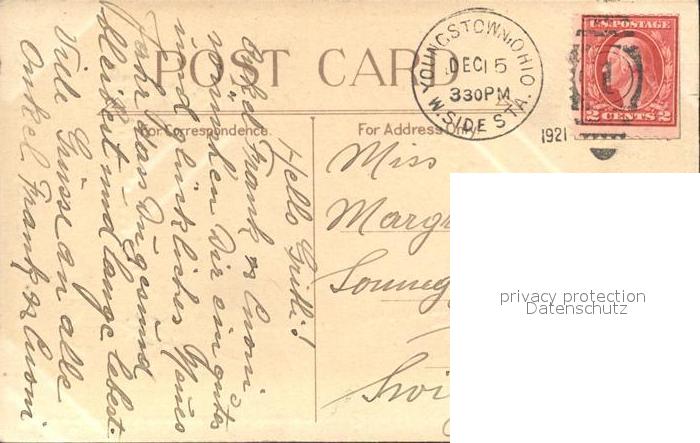 POST CARD
For Correspondence.
For Address Only.
YOUNGSTOWN, OHIO
DEC 15
330 PM
W SIDE STA.
1921
U.S. POSTAGE
2 CENTS 2
Hello Grithi!
Onkel Frank & Emmi
wünschen Dir ein gutes
und glückliches Neues
Jahr, dass Du gesund
bleibest und lange lebst.
Viele Grüsse an alle
Onkel Frank & Emmi
Miss
privacy protection
Datenschutz